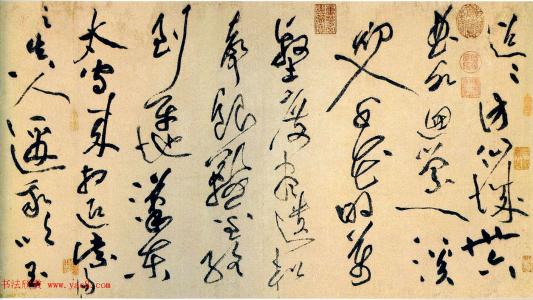 迢〻訪仙城卅六
曲水迴縈一溪
初入千花明萬
壑度盡松
聲銀鞍金絡
到平地漢東
太守来相迎紫陽
之真人邀我吹玉
书法欣赏 www.yac8.com